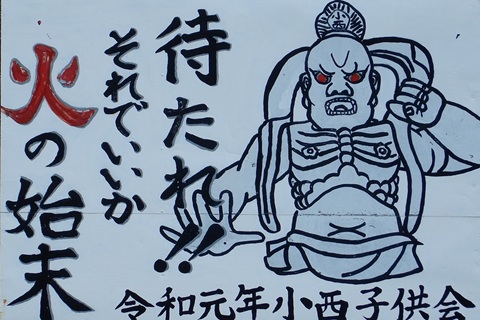 待たれ!!
それでいいか
火の始末
令和元年小西子供会